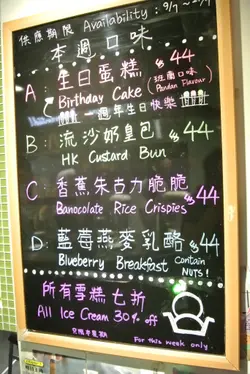 供應期限 Availability: 9/7 ~
本週口味
A: 生日蛋糕 $44
Birthday Cake (班蘭口味 Pandan Flavour)
一週年生日快樂
B: 流沙奶皇包 $44
HK Custard Bun
C: 香蕉朱古力脆脆 $44
Banocolate Rice Crispies
D: 藍莓燕麥乳酪 $44
Blueberry Breakfast Contain NUTS!
所有雪糕七折
All Ice Cream 30% off
只限本星期
For this week only